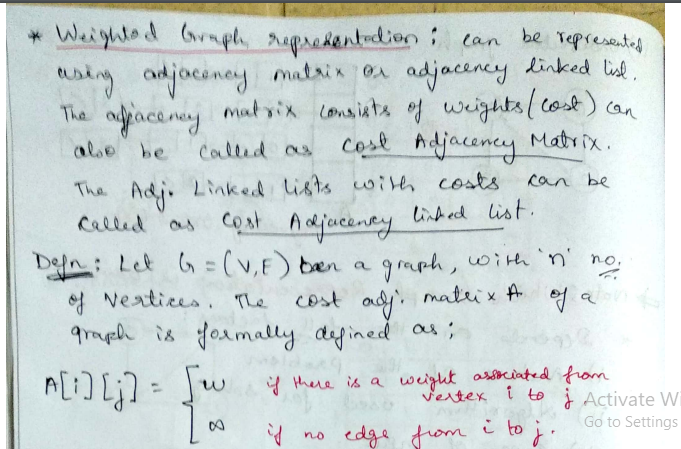 * Weighted Graph representation : can be represented
using adjacency matrix or adjacency linked list.
The adjacency matrix consists of weights/(cost) can
also be called as Cost Adjacency Matrix.
The Adj. Linked lists with costs can be
called as Cost Adjacency linked list.
Defn : Let G = (V, E) be a graph, with 'n' no.
of Vertices. The cost adj. matrix A of a
graph is formally defined as ;
A[i][j] = { w if there is a weight associated from
vertex i to j
∞ if no edge from i to j.
Activate Wi
Go to Settings